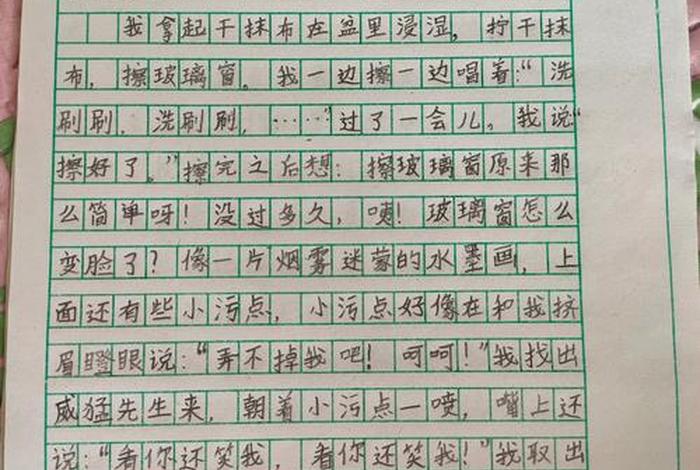 我拿起干抹布在盆里浸湿，拧干抹
布，擦玻璃窗。我一边擦一边唱着：“洗
刷刷，洗刷刷，……”过了一会儿，我说“
擦好了。”擦完之后想：擦玻璃窗原来那
么简单呀！没过多久，咦！玻璃窗怎么
变脸了？像一片烟雾迷蒙的水墨画，上
面还有些小污点，小污点好像在和我挤
眉瞪眼说：“弄不掉我吧！呵呵！”我找出
威猛先生来，朝着小污点一喷，嘴上还
说：“看你还笑我，看你还笑我！”我取出